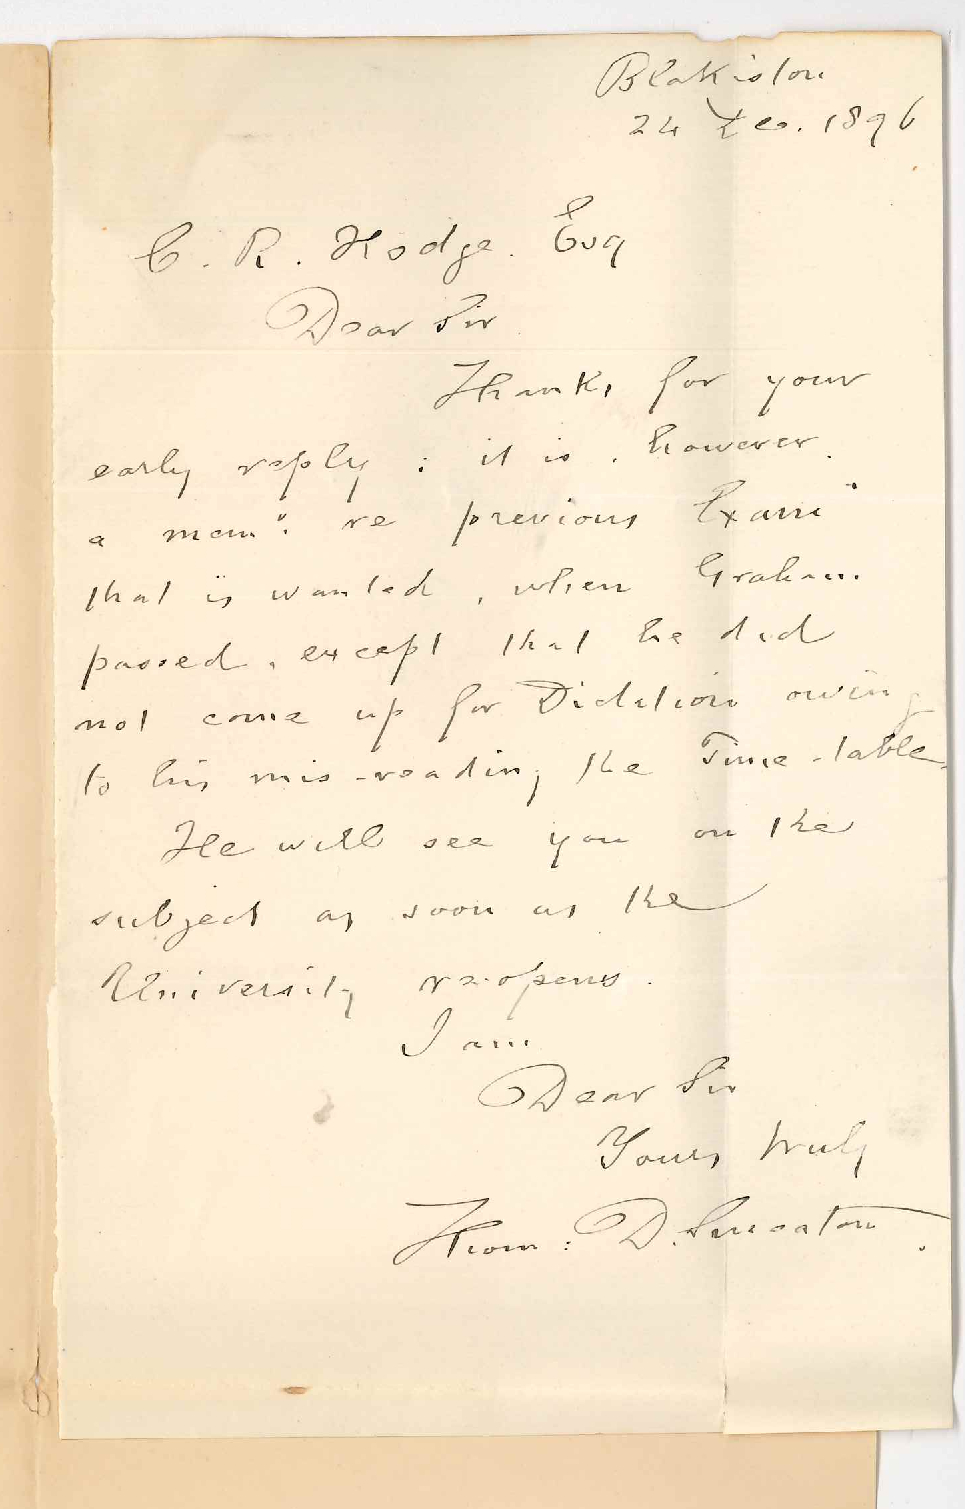 Blakiston
24 Dec. 1896
C. R. Hodge. Esq
Dear Sir
Thanks for your
early reply : it is , however ,
a mem: re previous Exam
that is wanted , when Graham
passed , except that he did
not come up for Dictation owing
to his mis-reading the Time-table.
He will see you on the
subject as soon as the
University re-opens .
I am
Dear Sir
Yours truly
Thom: D. Smeaton .